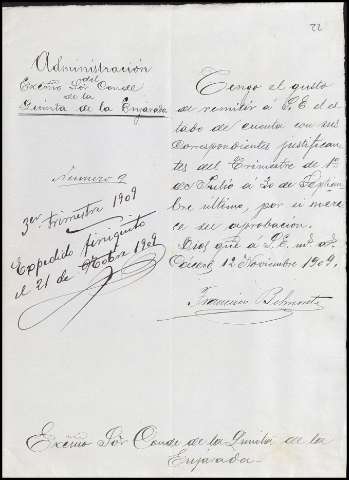 22
Administración
del
Excmo Sor Conde
de la
Quinta de la Enjarada
Número 9
3er trimestre 1909
Expedido finiquito
el 21 de Octobre 1909
Tengo el gusto
de remitir á S.E el es
tado de cuenta con sus
correspondientes justifican
tes del trimestre de 1º
de Julio a 30 de Septiem
bre último, por si mere
ce su aprobación.
Dios gue á S.E. ms as.
Cáceres 12 Noviembre 1909.
Francisco Belmonte
Excmo Sor Conde de la Quinta de la
Enjarada